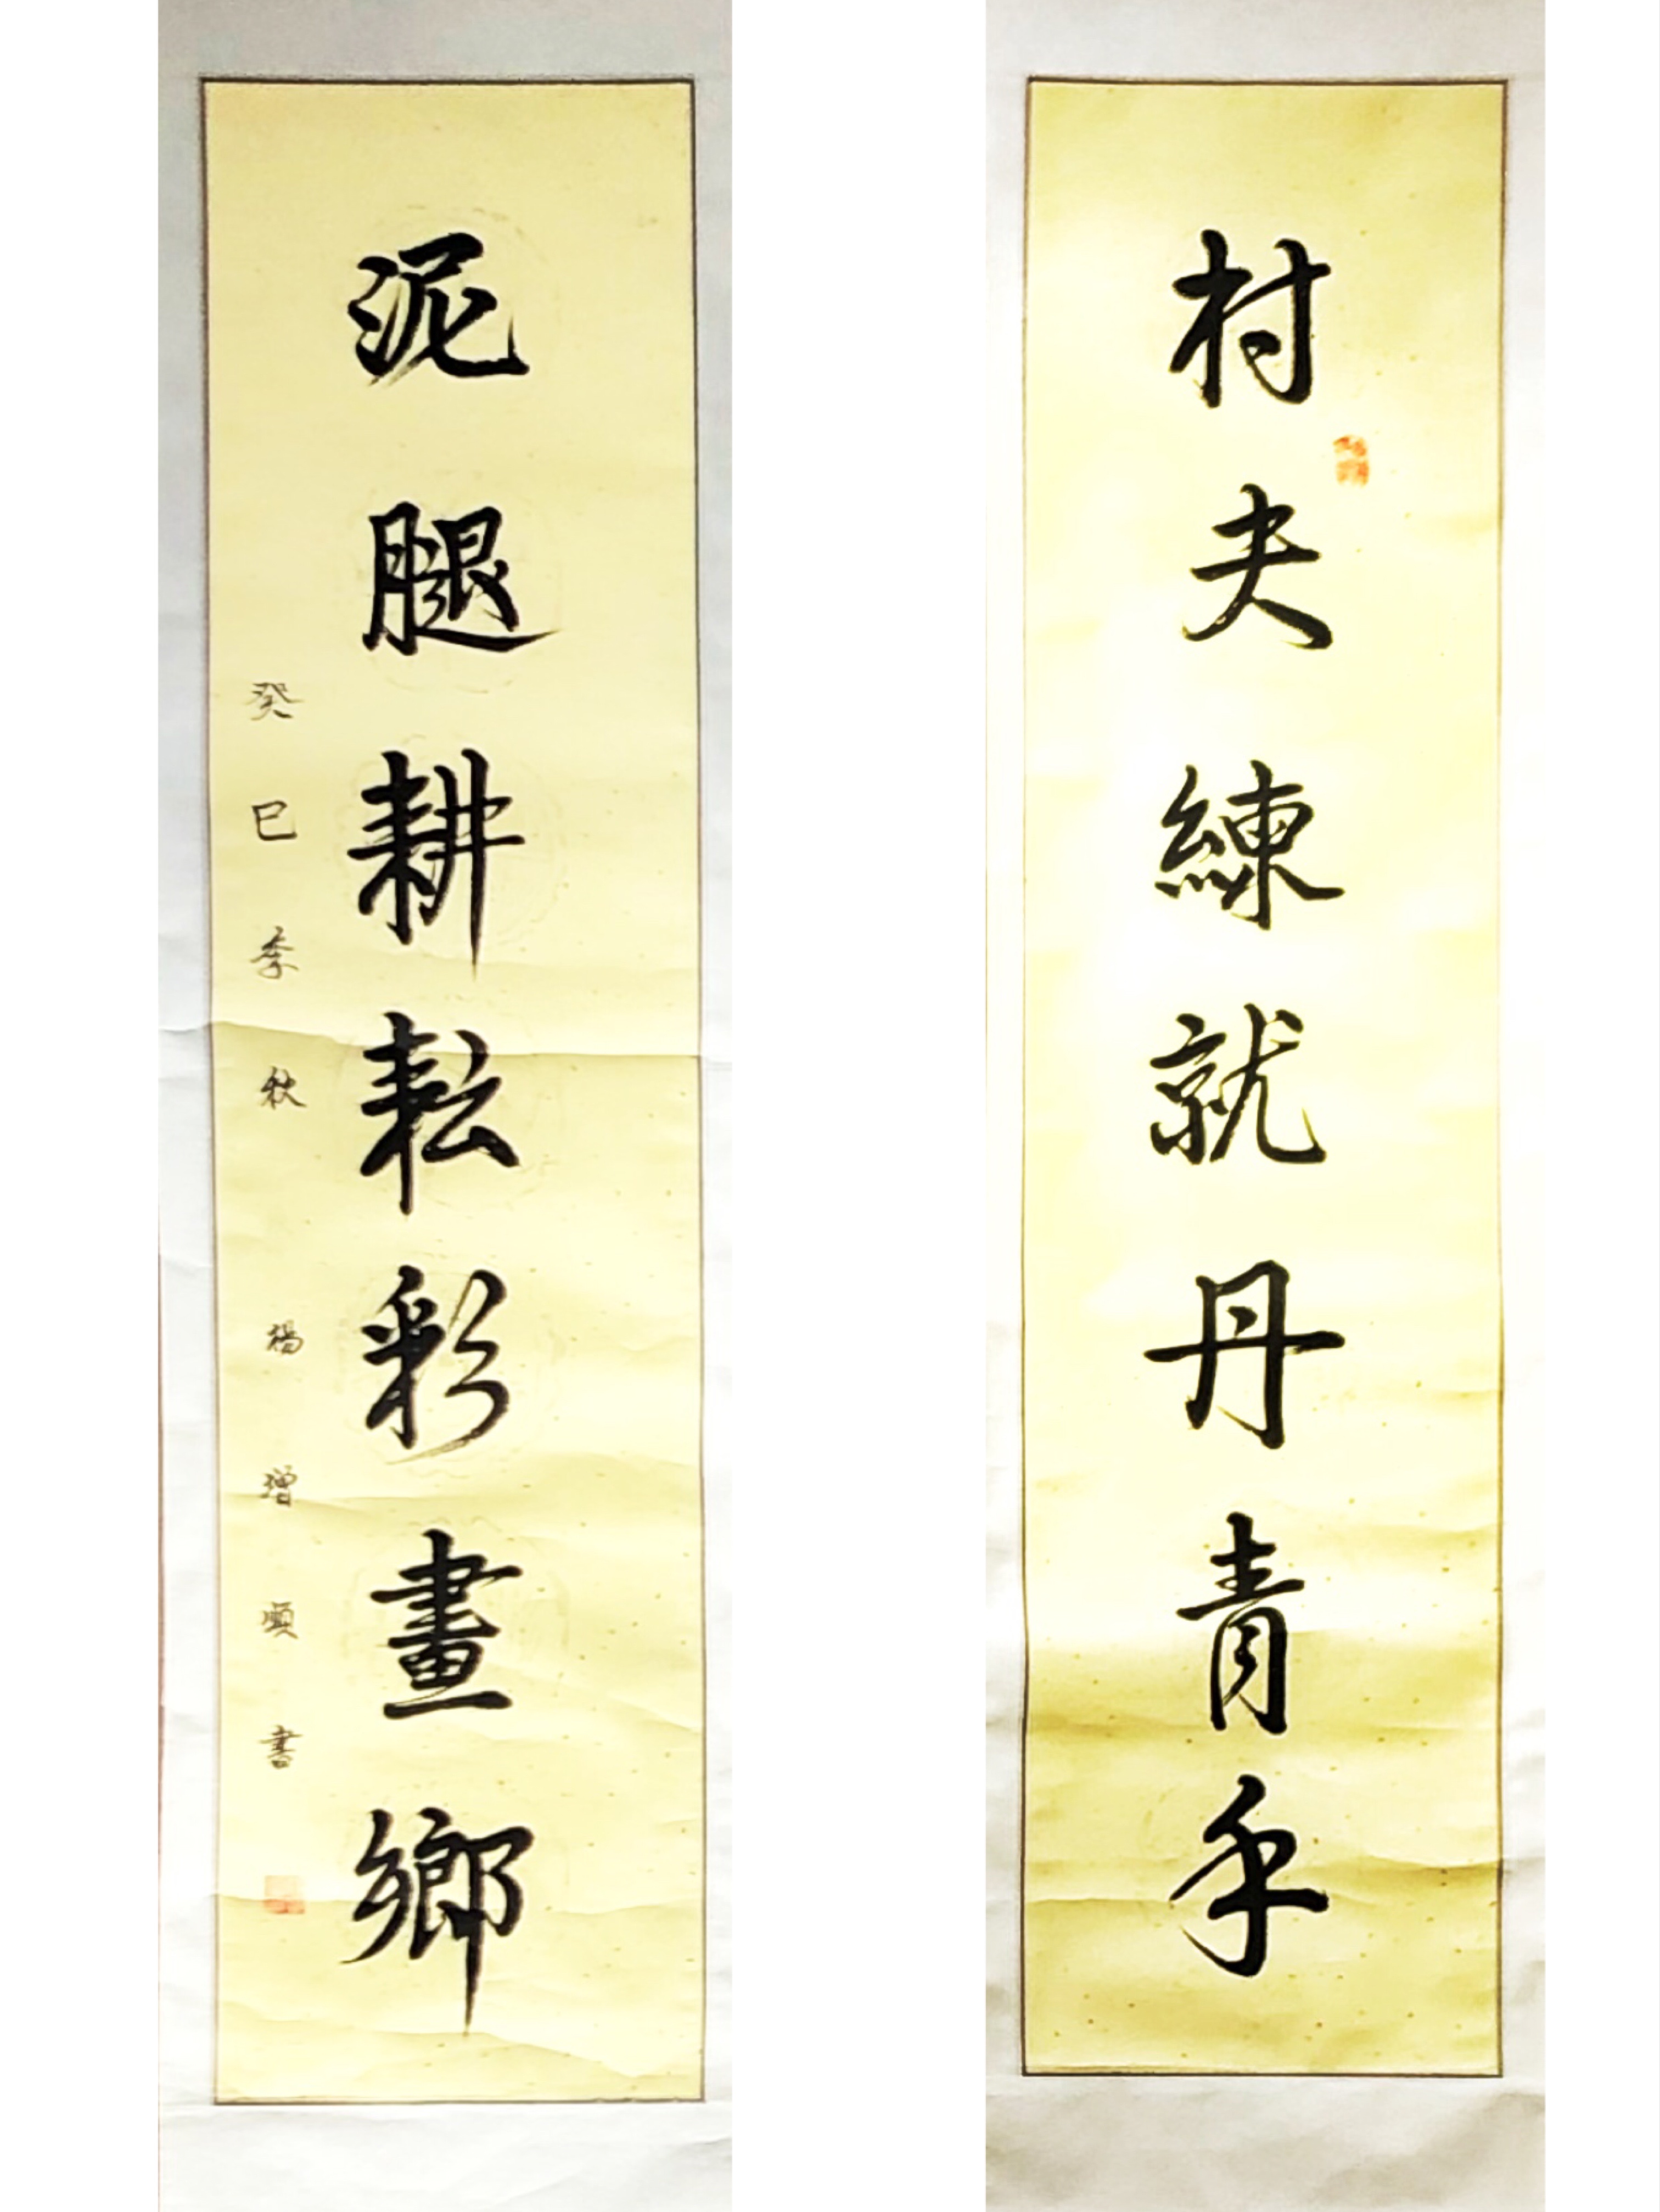 村夫練就丹青手
泥腿耕耘彩畫鄉
癸巳季秋 楊增順書